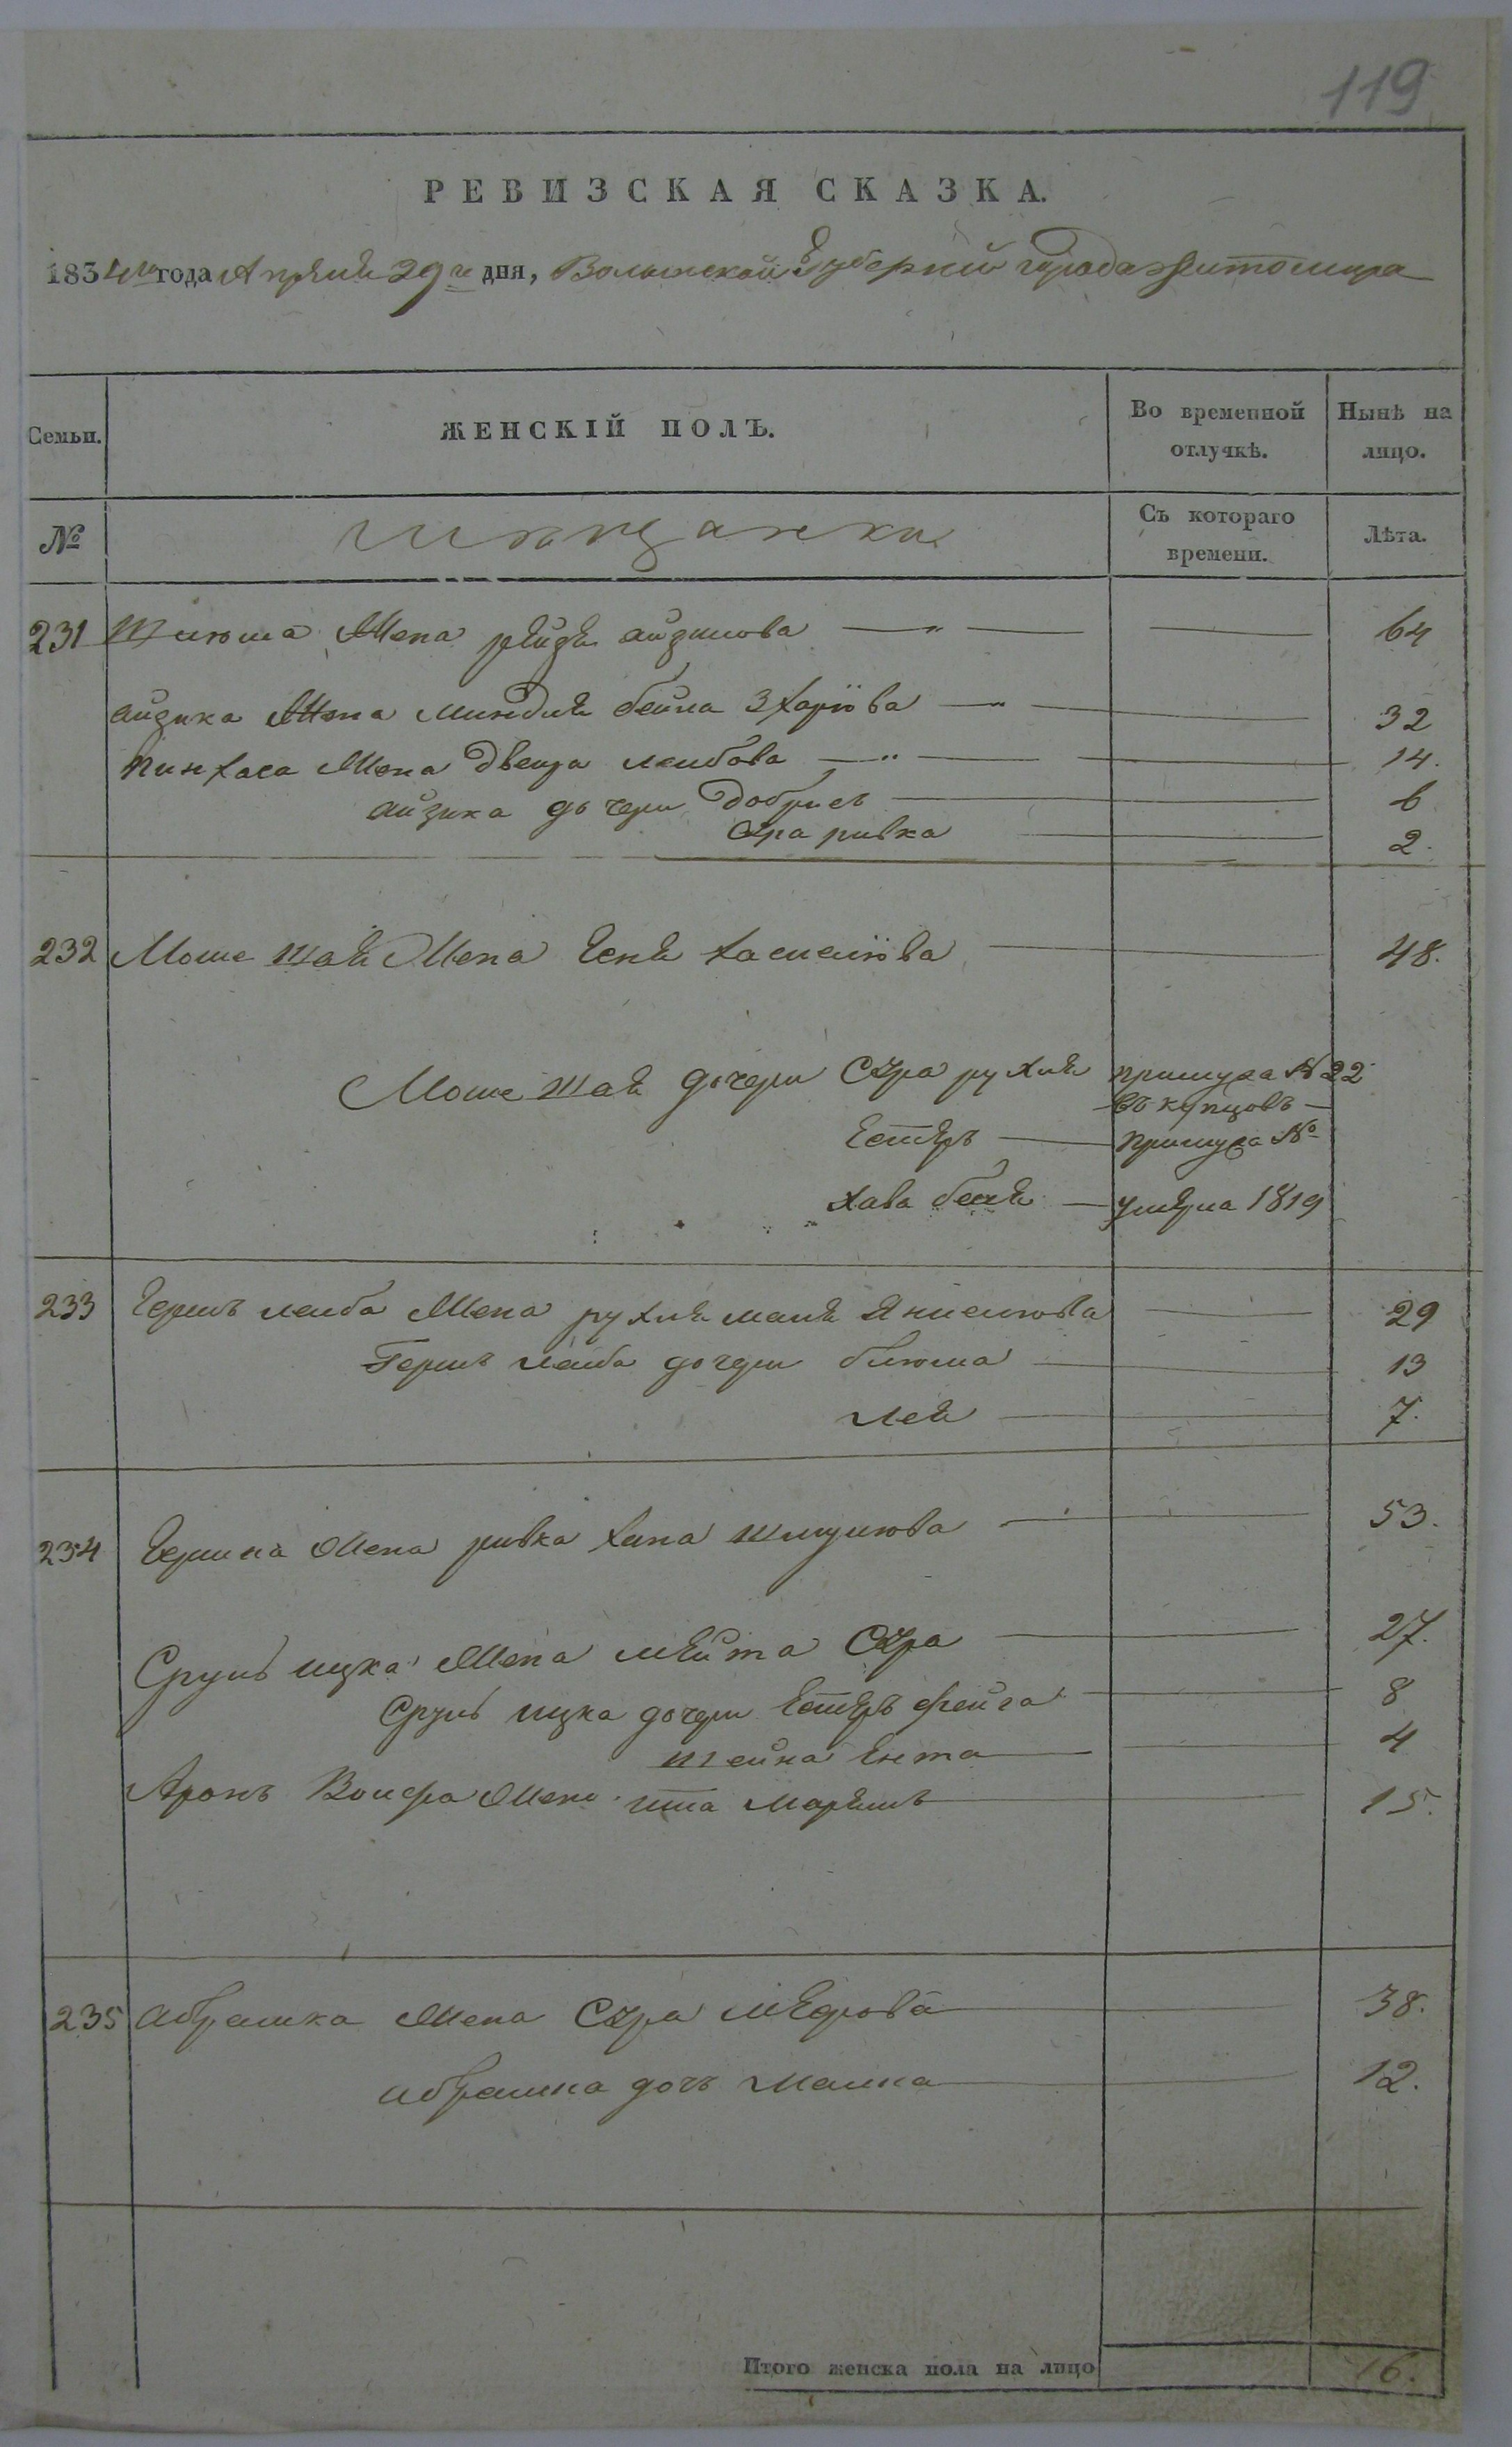 119
РЕВИЗСКАЯ СКАЗКА.
1834го года Апреля 29го дня, Волынской Губернии города Житомира
Семьи. ЖЕНСКІЙ ПОЛЪ. Во временной отлучкѣ. Нынѣ на лицо.
№ Мѣщанки Съ котораго времени. Лѣта.
231 Шлюма Жена рейзя айзикова — „ — 64
айзика Жена Миндля бейла — „ — 32
Пинхаса Жена Двейра лейбова — „ — 14.
айзика дочери Добрись 6
Сура ривка 2.
232 Моше Шая Жена Хася 48.
Моше Шая дочери Сура рухля №22
въ купцовъ
Естеръ №
Хава бейля — умерла 1819
233 Гершъ лейба Жена рухля маля 29
Гершъ лейба дочери блюма 13
лея 7.
234 Гершка Жена ривка хана шмулова 53.
Сруль ицка Жена Сура 27.
Сруль ицка дочери Естеръ фейга 8
шейна Ента 4
Аронъ Вольфа Жена ита Маріямъ 15.
235 абрамка Жена Сура меерова 38.
абрамка дочь малка 12.
Итого женска пола на лицо 16.